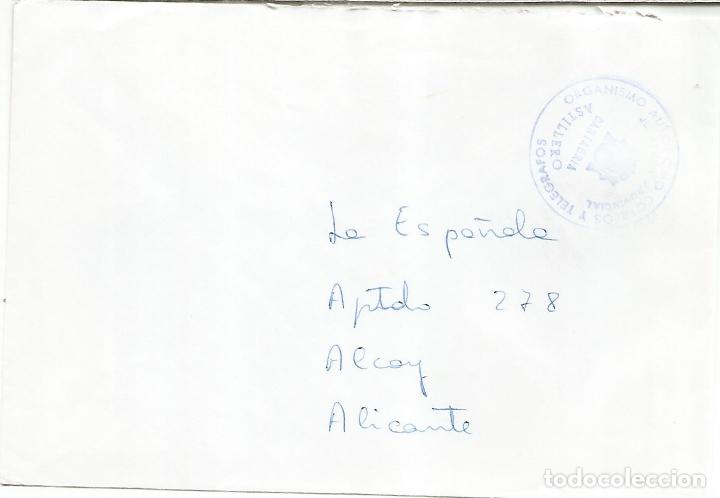 ORGANISMO AUTONOMO CORREOS Y TELEGRAFOS
PROVINCIAL
ASTILLERO
CANTABRIA
La Española
Aptdo 278
Alcoy
Alicante
todocoleccion.net